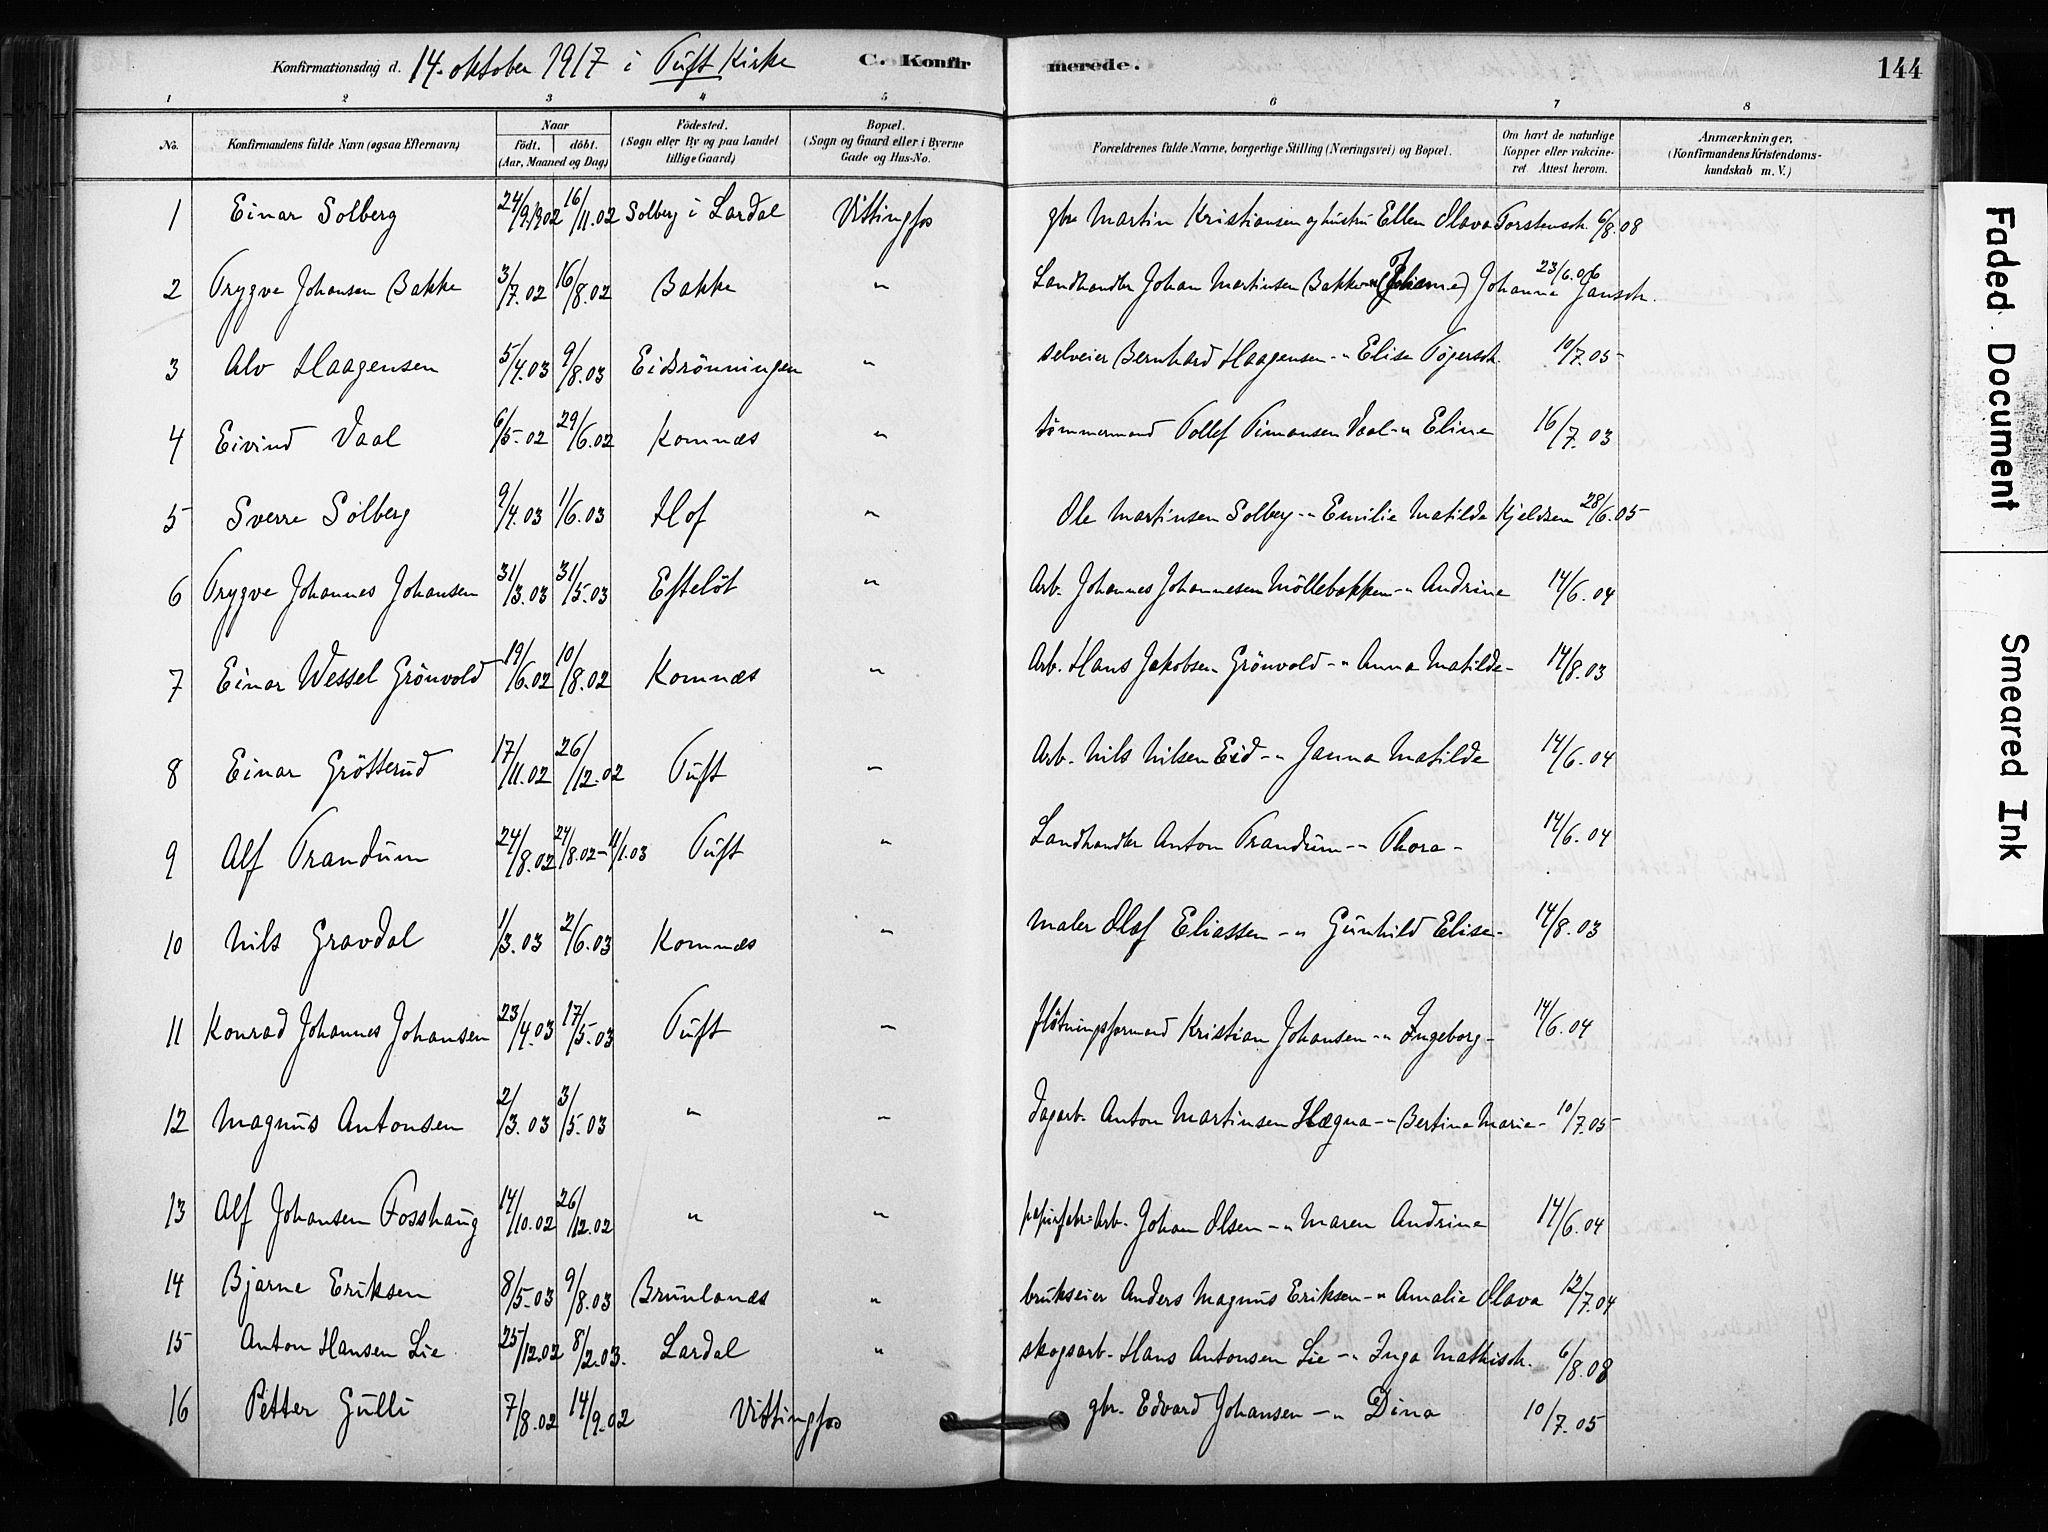 Konfirmationsdag d. 14. oktober 1917 i Tuft Kirke C. Konfirmerede. 144
1 2 3 4 5 6 7 8
No. Konfirmandens fulde Navn (ogsaa Efternavn) Naar födt. döbt. (Aar, Maaned og Dag) Födested. (Sogn eller By og paa Landet tillige Gaard) Bopæl. (Sogn og Gaard eller i Byerne Gade og Hus-No. Forældrenes fulde Navne, borgerlige Stilling (Næringsvei) og Bopæl. Om havt de naturlige Kopper eller vakcineret. Attest herom. Anmærkninger, (Konfirmandens Kristendomskundskab m. V.)
1 Einar Solberg 24/9.1902 16/11.02 Solberg i Lardal Vittingfos gbr Martin Kristiansen og hustru Ellen Olava Torstensdr. 6/8.08
2 Trygve Johansen Bakke 3/7.02 16/8.02 Bakke " Landhandler Johan Martinsen Bakke Johanne Jansdr. 23/6.06
3 Alv Haagensen 5/4.03 9/8.03 Eidsrönningen " selveier Bernhard Haagensen - " Elise Tögersdr. 10/7.05
4 Eivind Vaal 6/5.02 29/6.02 Komnæs " tömmermand Tollef Timansen Vaal - " Eline 16/7.03
5 Sverre Solberg 9/4.03 1/6.03 Hof " Ole Martinsen Solberg - " Emilie Matilde Kjeldsen 28/6.05
6 Trygve Johannes Johansen 31/3.03 31/5.03 Efteløt " Arb. Johannes Johannesen Möllebakken - " Andrine 14/6.04
7 Einar Wessel Grönvold 19/6.02 10/8.02 Komnæs " Arb. Hans Jakobsen Grönvold - " Anna Matilde - 14/8.03
8 Einar Grötterud 17/11.02 26/12.02 Tuft " Arb. Nils Nilsen Eid - " Janna Matilde 14/6.04
9 Alf Trandum 24/8.02 24/8.02 - 11/1.03 Tuft " Landhandler Anton Trandum - " Thora - 14/6.04
10 Nils Gravdal 1/3.03 2/6.03 Komnæs " maler Olaf Eliassen - " Gunhild Elise - 14/8.03
11 Konrad Johannes Johansen 23/4.03 17/5.03 Tuft " flötningsformand Kristian Johansen - " Ingeborg - 14/6.04
12 Magnus Antonsen 2/3.03 3/5.03 " " Dagarb. Anton Martinsen Hægna - " Bertine Marie - 10/7.05
13 Alf Johansen Fosshaug 14/10.02 26/12.02 " " papirfabr. Arb. Johan Olsen - " Maren Andrine 14/6.04
14 Bjarne Eriksen 8/5.03 9/8.03 Brunlanes " brukseier Anders Magnus Eriksen - " Amalie Olava 12/7.04
15 Anton Hansen Lie 25/12.02 8/2.03. Lardal " skogsarb. Hans Antonsen Lie - " Inga Mathisdr. 6/8.08
16 Petter Gulli 7/8.02 14/9.02 Vittingfos gbr. Edvard Johansen - " Dina 10/7.05
Faded Document
Smeared Ink